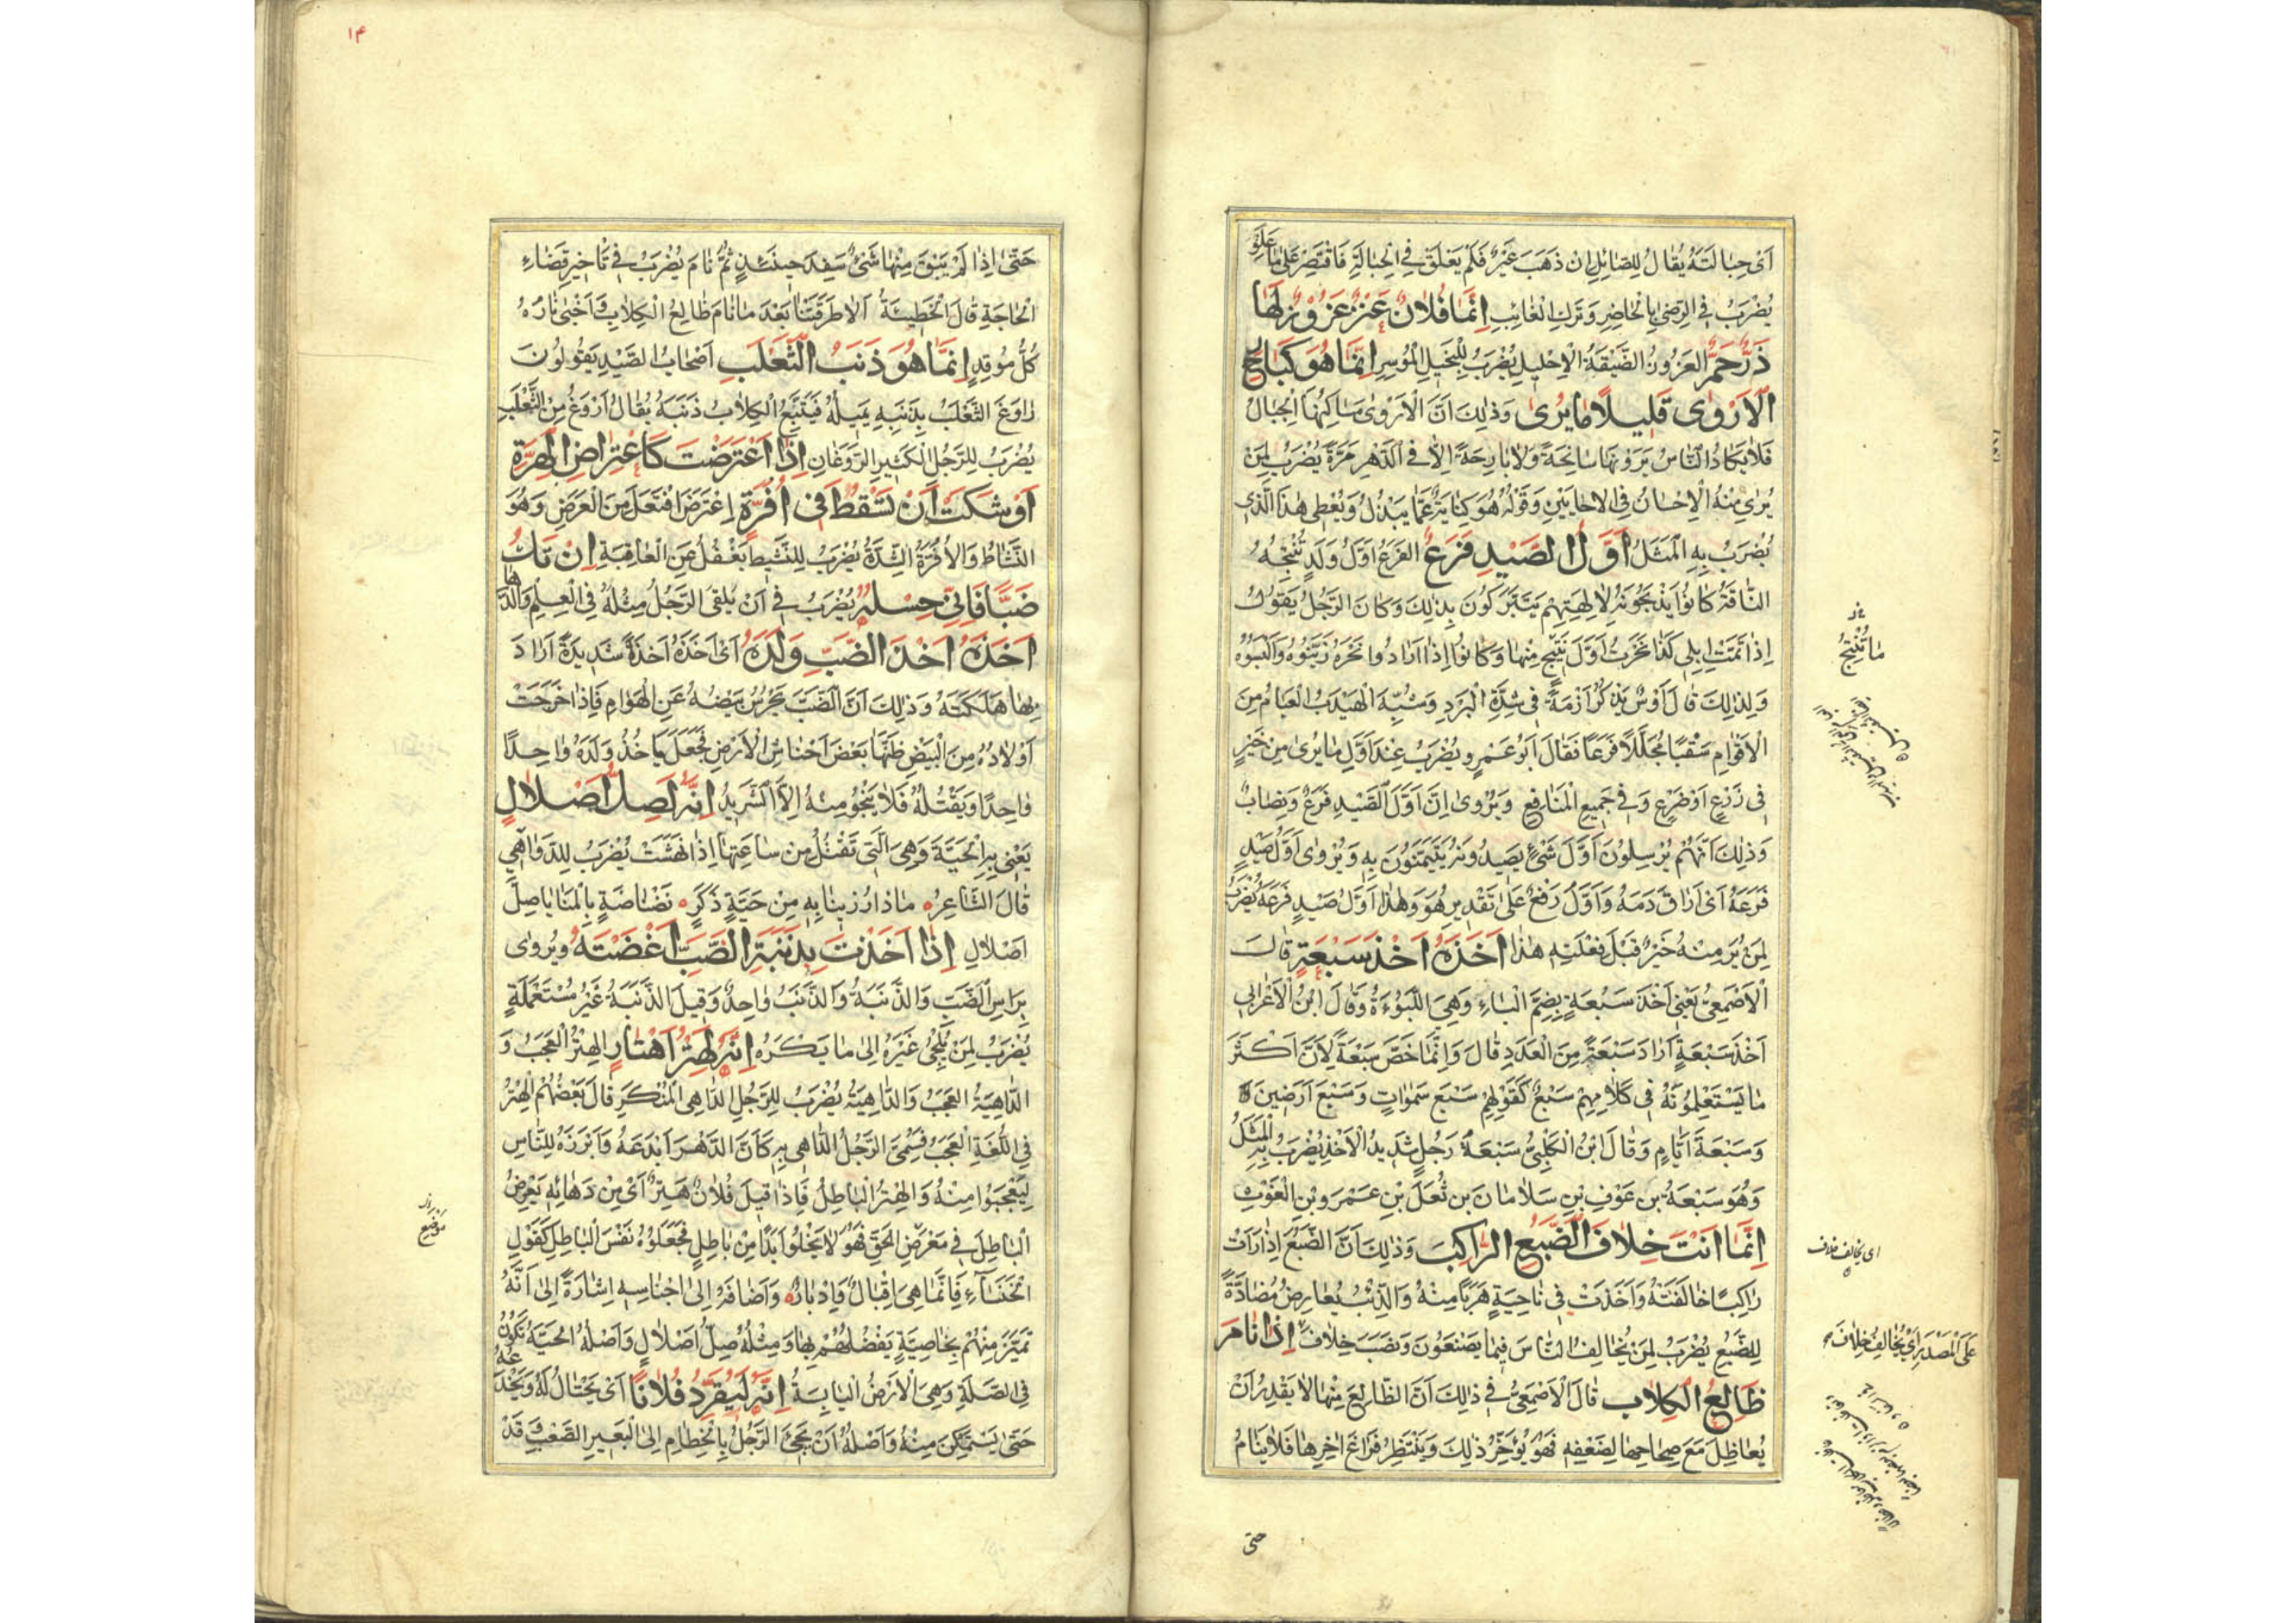 اَىْ حِبَالَتَهُ يُقَالُ لِلصَّائِلِ اِنْ ذَهَبَ غَيْرٌ فَلَمْ يَعْلَقْ فِى الْحِبَالَةِ فَاقْتَصِرْ عَلٰى مَا عَلِقَ
يُضْرَبُ فِى الرِّضٰى بِالْحَاضِرِ وَتَرْكِ الْغَائِبِ اِنَّمَا فُلَانٌ عَنْزٌ عَزُوزٌ لَهَا
دَرٌّ جَمٌّ الْعَزُوزُ الضَّيِّقَةُ الْاِحْلِيلِ يُضْرَبُ لِلْبَخِيلِ الْمُوسِرِ اِنَّمَا هُوَ كَبَارِحِ
الْاَرْوٰى قَلِيلًا مَا يُرٰى وَذٰلِكَ اَنَّ الْاَرْوٰى مَسَاكِنُهَا الْجِبَالُ
فَلَا يَكَادُ النَّاسُ يَرَوْنَهَا سَانِحَةً وَلَا بَارِحَةً اِلَّا فِى الدَّهْرِ مَرَّةً يُضْرَبُ لِمَنْ
يُرٰى مِنْهُ الْاِحْسَانُ فِى الْاَحَايِينِ وَقَوْلُهُ هُوَ كِنَايَةٌ عَمَّا يَبْذُلُ وَيُعْطِى هٰذَا الَّذِى
يُضْرَبُ بِهِ الْمَثَلُ اَوَّلُ الصَّيْدِ فَرَعٌ الْفَرَعُ اَوَّلُ وَلَدٍ تُنْتِجُهُ
النَّاقَةُ كَانُوا يَذْبَحُونَهُ لِاٰلِهَتِهِمْ يَتَبَرَّكُونَ بِذٰلِكَ وَكَانَ الرَّجُلُ يَقُولُ
اِذَا تَمَّتْ اِبِلِى كَذَا نَحَرْتُ اَوَّلَ نَتِيجٍ مِنْهَا وَكَانُوا اِذَا اَرَادُوا نَحْرَهُ زَيَّنُوهُ وَاَلْبَسُوهُ
وَلِذٰلِكَ قَالَ اَوْسٌ يَذْكُرُ اَزْمَةً فِى شِدَّةِ الْبَرْدِ وَشُبِّهَ الْهَيْدَبُ الْعَبَامُ مِنَ
الْاَقْوَامِ سَقْبًا مُجَلَّلًا فَرَعًا فَقَالَ اَبُو عَمْرٍو يُضْرَبُ عِنْدَ اَوَّلِ مَا يُرٰى مِنْ خَيْرٍ
فِى زَرْعٍ اَوْ ضَرْعٍ وَفِى جَمِيعِ الْمَنَافِعِ وَيُرْوٰى اِنَّ اَوَّلَ الصَّيْدِ فَرَعٌ وَنِصَابٌ
وَذٰلِكَ اَنَّهُمْ يُرْسِلُونَ اَوَّلَ شَىْءٍ يَصِيدُونَهُ يَتَيَمَّنُونَ بِهِ وَيُرْوٰى اَوَّلُ صَيْدٍ
فَرَعَهُ اَىْ اَرَاقَ دَمَهُ وَاَوَّلُ رَفْعٌ عَلٰى تَقْدِيرِ هُوَ وَهٰذَا اَوَّلُ صَيْدٍ فَرَعَهُ يُضْرَبُ
لِمَنْ يُرَ مِنْهُ خَيْرٌ قَبْلَ فِعْلَتِهِ هٰذَا اَخَذَهُ اَخْذَ سَبُعَةٍ قَالَ
الْاَصْمَعِىُّ يَعْنِى اَخْذَ سَبُعَةٍ بِضَمِّ الْبَاءِ وَهِىَ اللَّبُوءَةُ وَقَالَ ابْنُ الْاَعْرَابِى
اَخْذَ سَبْعَةٍ اَرَادَ سَبْعَةً مِنَ الْعَدَدِ قَالَ وَاِنَّمَا خَصَّ سَبْعَةً لِاَنَّ اَكْثَرَ
مَا يَسْتَعْمِلُونَهُ فِى كَلَامِهِمْ سَبْعٌ كَقَوْلِهِمْ سَبْعَ سَمٰوَاتٍ وَسَبْعَ اَرَضِينَ
وَسَبْعَةَ اَيَّامٍ وَقَالَ ابْنُ الْكَلْبِىِّ سَبْعَةُ رَجُلٌ شَدِيدُ الْاَخْذِ يُضْرَبُ بِهِ الْمَثَلُ
وَهُوَ سَبْعَةُ بْنِ عَوْفِ بْنِ سَلَامَانَ بْنِ ثُعَلَ بْنِ عَمْرِو بْنِ الْغَوْثِ
اِنَّمَا اَنْتَ خِلَافَ الضَّبُعِ الرَّاكِبَ وَذٰلِكَ اَنَّ الضَّبُعَ اِذَا رَاَتْ
رَاكِبًا خَالَفَتْهُ وَاَخَذَتْ فِى نَاحِيَةٍ هَرَبًا مِنْهُ وَالذِّئْبُ يُعَارِضُ مُضَادَّةً
لِلضَّبُعِ يُضْرَبُ لِمَنْ يُخَالِفُ النَّاسَ فِيمَا يَصْنَعُونَ وَنَصَبَ خِلَافَ اِذَا نَامَ
ظَالِعُ الْكِلَابِ قَالَ الْاَصْمَعِىُّ فِى ذٰلِكَ اَنَّ الظَّالِعَ مِنْهَا لَا يَقْدِرُ اَنْ
يُعَاظِلَ مَعَ صِحَاحِهَا لِضَعْفِهِ فَهُوَ يُؤَخِّرُ ذٰلِكَ وَيَنْتَظِرُ فَرَاغَ اٰخِرِهَا فَلَا يَنَامُ
حتى
مَا تُنْتِجُ
اى يخالف خلاف
عَلَى الْمَصْدَرِ اَىْ يُخَالِفُ خِلَافَ
١٤
حَتّٰى اِذَا لَمْ يَبْقَ مِنْهَا شَىْءٌ سَفِدَ حِينَئِذٍ ثُمَّ نَامَ يُضْرَبُ فِى تَاْخِيرِ قَضَاءِ
الْحَاجَةِ قَالَ الْحُطَيْئَةُ اَلَا طَرَقَتْنَا بَعْدَ مَا نَامَ ظَالِعُ الْكِلَابِ وَاَخْبٰى نَارَهُ
كُلُّ مُوقِدٍ اِنَّمَا هُوَ ذَنَبُ الثَّعْلَبِ اَصْحَابُ الصَّيْدِ يَقُولُونَ
رَاوَغَ الثَّعْلَبُ بِذَنَبِهِ يَمِيلُهُ فَيَتَّبِعُ الْكِلَابُ ذَنَبَهُ يُقَالُ اَرْوَغُ مِنَ الثَّعْلَبِ
يُضْرَبُ لِلرَّجُلِ الْكَثِيرِ الرَّوَغَانِ اِذَا اعْتَرَضَتْ كَاعْتِرَاضِ الْهِرَّةِ
اَوْشَكَتْ اَنْ تَسْقُطَ فِى اُفُرَّةٍ اِعْتَرَضَ افْتَعَلَ مِنَ الْعَرَضِ وَهُوَ
النَّشَاطُ وَالْاُفُرَّةُ الشِّدَّةُ يُضْرَبُ لِلنَّشِيطِ يَغْفُلُ عَنِ الْعَاقِبَةِ اِنْ تَكُ
ضَبًّا فَاِنِّى حِسْلُهُ يُضْرَبُ فِى اَنْ يَلْقَى الرَّجُلُ مِثْلَهُ فِى الْعِلْمِ وَالدَّهَا
اَخَذَهُ اَخْذَ الضَّبِّ وَلَدَهُ اَىْ اَخَذَهُ اَخْذَةً شَدِيدَةً اَرَادَ
بِهَا هَلَكَتَهُ وَذٰلِكَ اَنَّ الضَّبَّ يَحْرُسُ بَيْضَهُ عَنِ الْهَوَامِ فَاِذَا خَرَجَتْ
اَوْلَادُهُ مِنَ الْبَيْضِ ظَنَّهَا بَعْضَ اَحْنَاشِ الْاَرْضِ فَجَعَلَ يَاخُذُ وَلَدَهُ وَاحِدًا
وَاحِدًا وَيَقْتُلُهُ فَلَا يَنْجُو مِنْهُ اِلَّا الشَّرِيدُ اِنَّهُ لَصِلُّ اَصْلَالٍ
يَعْنِى بِهِ الْحَيَّةَ وَهِىَ الَّتِى تَقْتُلُ مِنْ سَاعَتِهَا اِذَا نَهَشَتْ يُضْرَبُ لِلدَّوَاهِى
قَالَ الشَّاعِرُ مَاذَا رُزِينَا بِهِ مِنْ حَيَّةٍ ذَكَرٍ نَضْنَاضَةٍ بِالْمَنَايَا صِلِّ
اَصْلَالِ اِذَا اَخَذْتَ بِذَنَبَةِ الضَّبِّ اَغْضَبْتَهُ وَيُرْوٰى
بِرَاْسِ الضَّبِّ وَالذَّنَبَةُ وَالذَّنَبُ وَاحِدٌ وَقِيلَ الذَّنَبَةُ غَيْرُ مُسْتَعْمَلَةٍ
يُضْرَبُ لِمَنْ يُلْجِئُ غَيْرَهُ اِلٰى مَا يَكْرَهُ اِنَّهُ لَهِتْرُ اَهْتَارٍ الْهِتْرُ الْعَجَبُ وَ
الدَّاهِيَةُ الْعَجَبُ وَالدَّاهِيَةُ يُضْرَبُ لِلرَّجُلِ الدَّاهِى الْمُنْكَرِ قَالَ بَعْضُهُمْ الْهِتْرُ
فِى اللُّغَةِ الْعَجَبُ فَسُمِّىَ الرَّجُلُ الدَّاهِى بِهِ كَاَنَّ الدَّهْرَ اَبْدَعَهُ وَاَبْرَزَهُ لِلنَّاسِ
لِيَعْجَبُوا مِنْهُ وَالْهِتْرُ الْبَاطِلُ فَاِذَا قِيلَ فُلَانٌ هِتْرٌ اَىْ مِنْ دَهَائِهِ يَعْرِضُ
الْبَاطِلَ فِى مَعْرَضِ الْحَقِّ فَهُوَ لَا يَخْلُو اَبَدًا مِنْ بَاطِلٍ فَجَعَلُوهُ نَفْسَ الْبَاطِلِ كَقَوْلِ
الْخَنْسَاءِ فَاِنَّمَا هِىَ اِقْبَالٌ وَاِدْبَارٌ وَاَضَافَهُ اِلٰى اَجْنَاسِهِ اِشَارَةً اِلٰى اَنَّهُ
تَمَيَّزَ مِنْهُمْ بِخَاصِيَّةٍ يَفْضُلُهُمْ بِهَا وَمِثْلُهُ صِلُّ اَصْلَالٍ وَاَصْلُهُ الْحَيَّةُ تَكُونُ
فِى الصَّلَةِ وَهِىَ الْاَرْضُ الْيَابِسَةُ اِنَّهُ لَيُقَرِّدُ فُلَانًا اَىْ يَحْتَالُ لَهُ وَيَخْدَعُهُ
حَتّٰى يَسْتَمْكِنَ مِنْهُ وَاَصْلُهُ اَنْ يَجِىءَ الرَّجُلُ بِالْخِطَامِ اِلَى الْبَعِيرِ الصَّعْبِ وَقَدْ
مَوْضِع